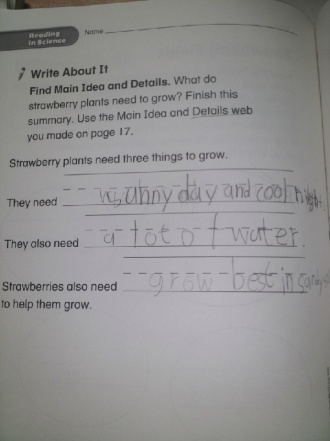 Reading
in Science
Name
Write About It
Find Main Idea and Details. What do
strawberry plants need to grow? Finish this
summary. Use the Main Idea and Details web
you made on page 17.
Strawberry plants need three things to grow.
They need sunny day and cool
They also need a lot of water.
Strawberries also need grow best in
to help them grow.